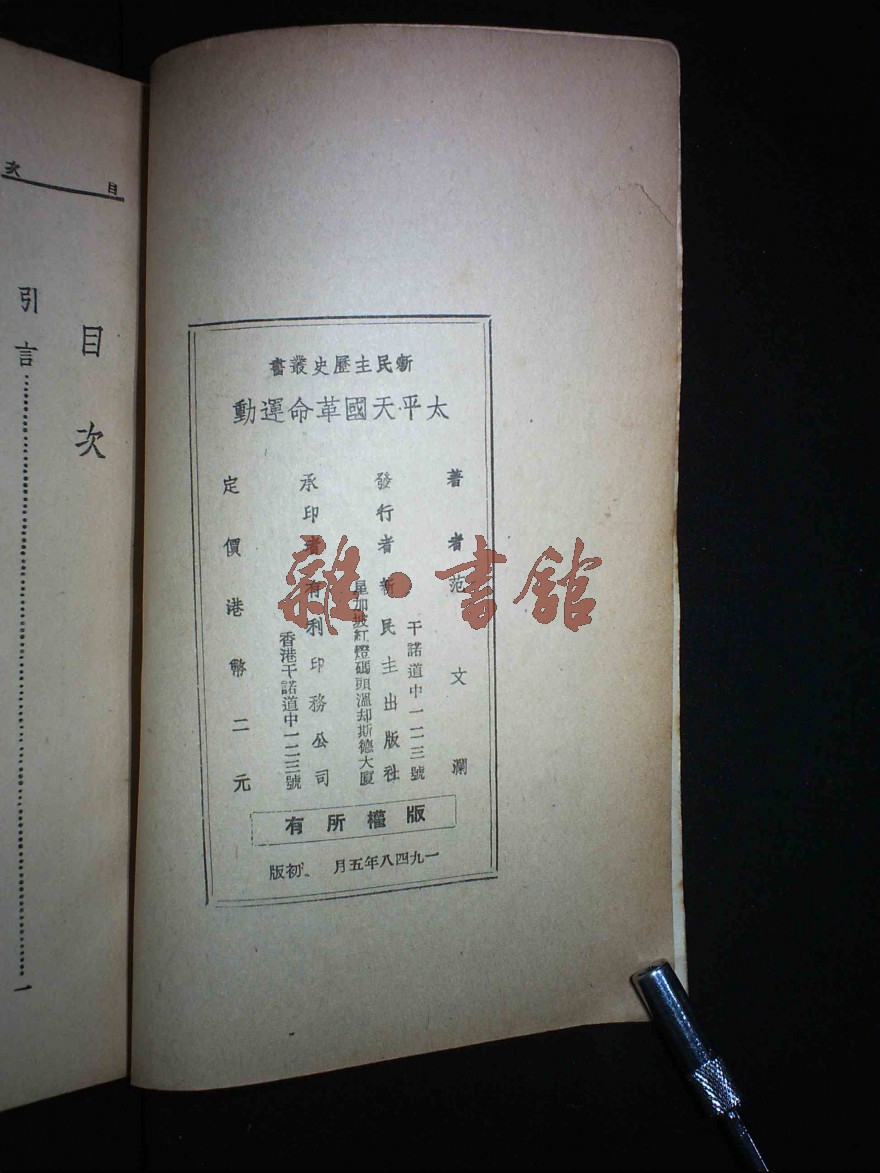 新民主歷史叢書
太平天國革命運動
著者范文瀾
干諾道中一二三號
發行者新民主出版社
星加坡紅燈碼頭溫却斯德大廈
承印者有利印務公司
香港干諾道中一二三號
定價港幣二元
版權所有
一九四八年五月 初版
目次
目次
引言……………………一
雜·書館